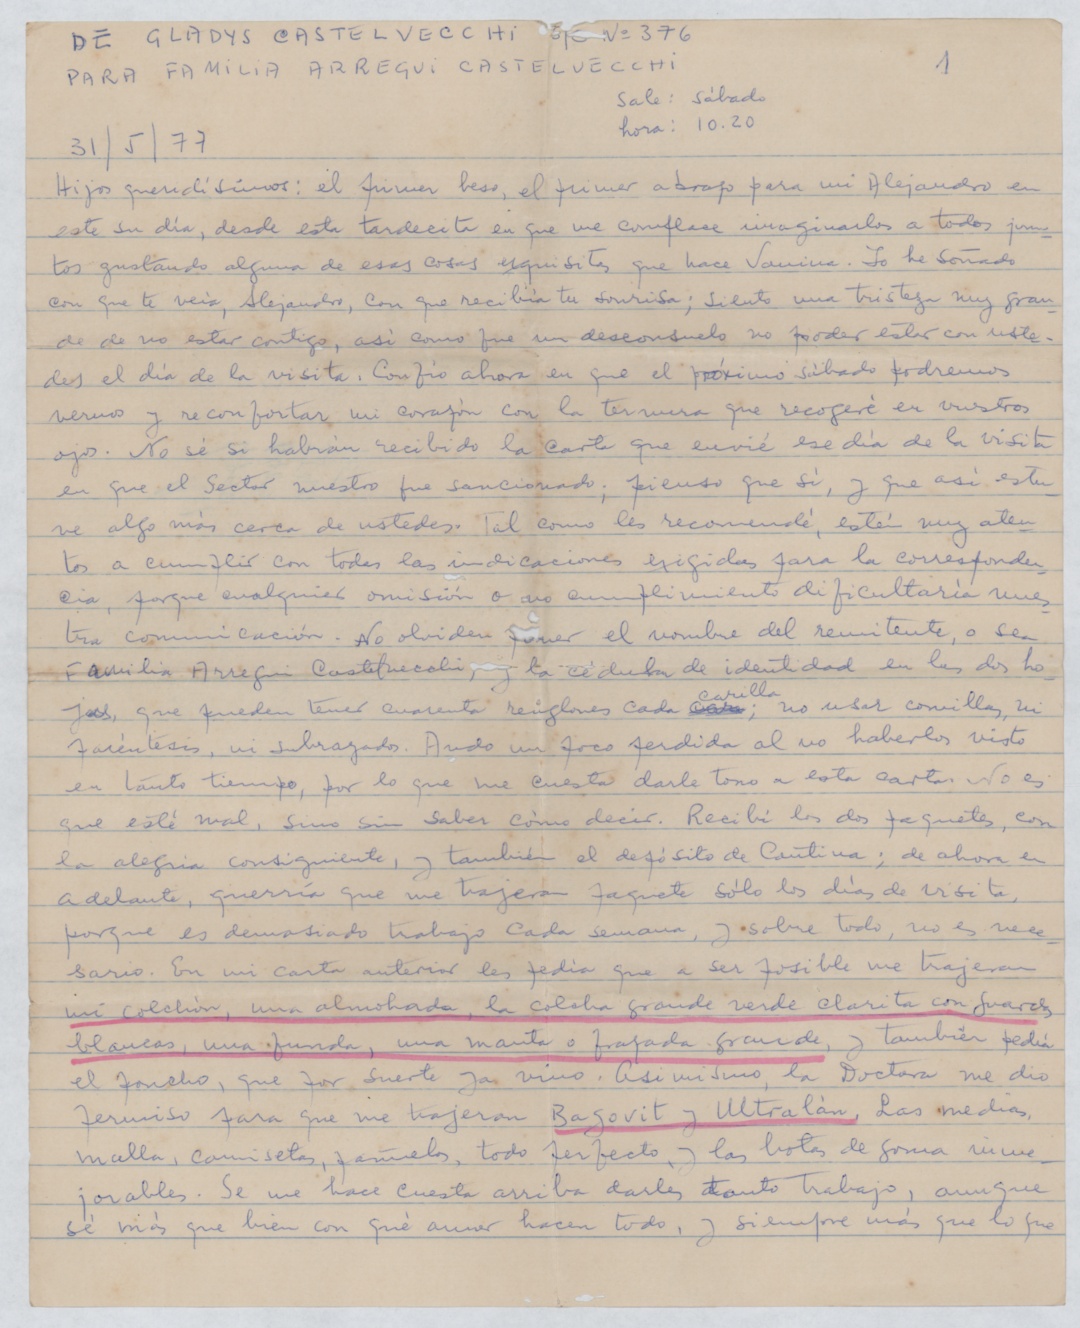 DE GLADYS CASTELVECCHI Nº 376
PARA FAMILIA ARREGUI CASTELVECCHI
1
Sale: Sábado
hora: 10.20
31/5/77
Hijos queridísimos: el primer beso, el primer abrazo para mi Alejandro en
este su día, desde esta tardecita en que me complace imaginarlos a todos jun-
tos gustando alguna de esas cosas exquisitas que hace Vanina. Yo he soñado
con que te veía, Alejandro, con que recibía tu sonrisa; siento una tristeza muy gran-
de de no estar contigo, así como fue un desconsuelo no poder estar con uste-
des el día de la visita. Confío ahora en que el próximo sábado podremos
vernos y reconfortar mi corazón con la ternura que recogeré en vuestros
ojos. No sé si habrán recibido la carta que envié ese día de la visita
en que el Sector nuestro fue sancionado; pienso que sí, y que así estu-
ve algo más cerca de ustedes. Tal como les recomendé, estén muy aten-
tos a cumplir con todas las indicaciones exigidas para la corresponden-
cia, porque cualquier omisión o no cumplimiento dificultaría nues-
tra comunicación. No olviden poner el nombre del remitente, o sea
Familia Arregui Castelvecchi, y la cédula de identidad en las dos ho-
jas, que pueden tener cuarenta renglones cada carilla; no usar comillas, ni
paréntesis, ni subrayados. Ando un poco perdida al no haberlos visto
en tánto tiempo, por lo que me cuesta darle tono a esta carta. No es
que esté mal, sino sin saber cómo decir. Recibí los dos paquetes, con
la alegría consiguiente, y también el depósito de Cantina; de ahora en
adelante, querría que me trajeran paquete sólo los días de visita,
porque es demasiado trabajo cada semana, y sobre todo, no es nece-
sario. En mi carta anterior les pedía que a ser posible me trajeran
mi colchón, una almohada, la colcha grande verde clarita con guardas
blancas, una funda, una manta o frazada grande, y también pedía
el poncho, que por suerte ya vino. Asimismo, la Doctora me dio
permiso para que me trajeran Bagovit y Ultralán. Las medias,
malla, camisetas, pañuelos, todo perfecto, y las botas de goma inme-
jorables. Se me hace cuesta arriba darles tanto trabajo, aunque
sé más que bien con qué amor hacen todo, y siempre más que lo que